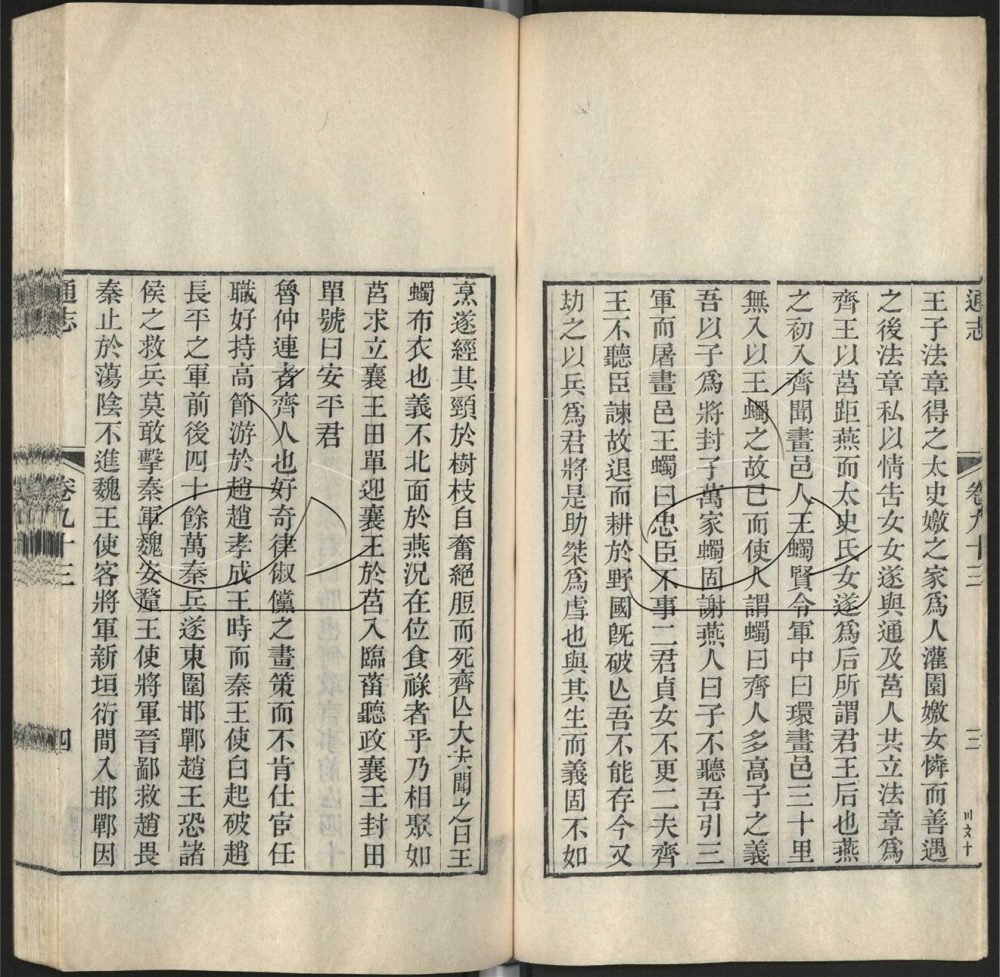 通志
卷九十三
三
王子法章得之太史嫩之家爲人灌園嫩女憐而善遇
之後法章私以情告女女遂與通及莒人共立法章爲
齊王以莒距燕而太史氏女遂爲后所謂君王后也燕
之初入齊聞畫邑人王蠋賢令軍中曰環畫邑三十里
無入以王蠋之故已而使人謂蠋曰齊人多高子之義
吾以子爲將封子萬家蠋固謝燕人曰子不聽吾引三
軍而屠畫邑王蠋曰忠臣不事二君貞女不更二夫齊
王不聽臣諫故退而耕於野國旣破亾吾不能存今又
劫之以兵爲君將是助桀爲虐也與其生而義固不如
烹遂經其頸於樹枝自奮絕脰而死齊亾大夫聞之曰王
蠋布衣也義不北面於燕況在位食祿者乎乃相聚如
莒求立襄王田單迎襄王於莒入臨菑聽政襄王封田
單號曰安平君
魯仲連者齊人也好奇律俶儻之畫策而不肯仕宦任
職好持高節游於趙趙孝成王時而秦王使白起破趙
長平之軍前後四十餘萬秦兵遂東圍邯鄲趙王恐諸
侯之救兵莫敢擊秦軍魏安釐王使將軍晉鄙救趙畏
秦止於蕩陰不進魏王使客將軍新垣衍間入邯鄲因
通志
卷九十三
四